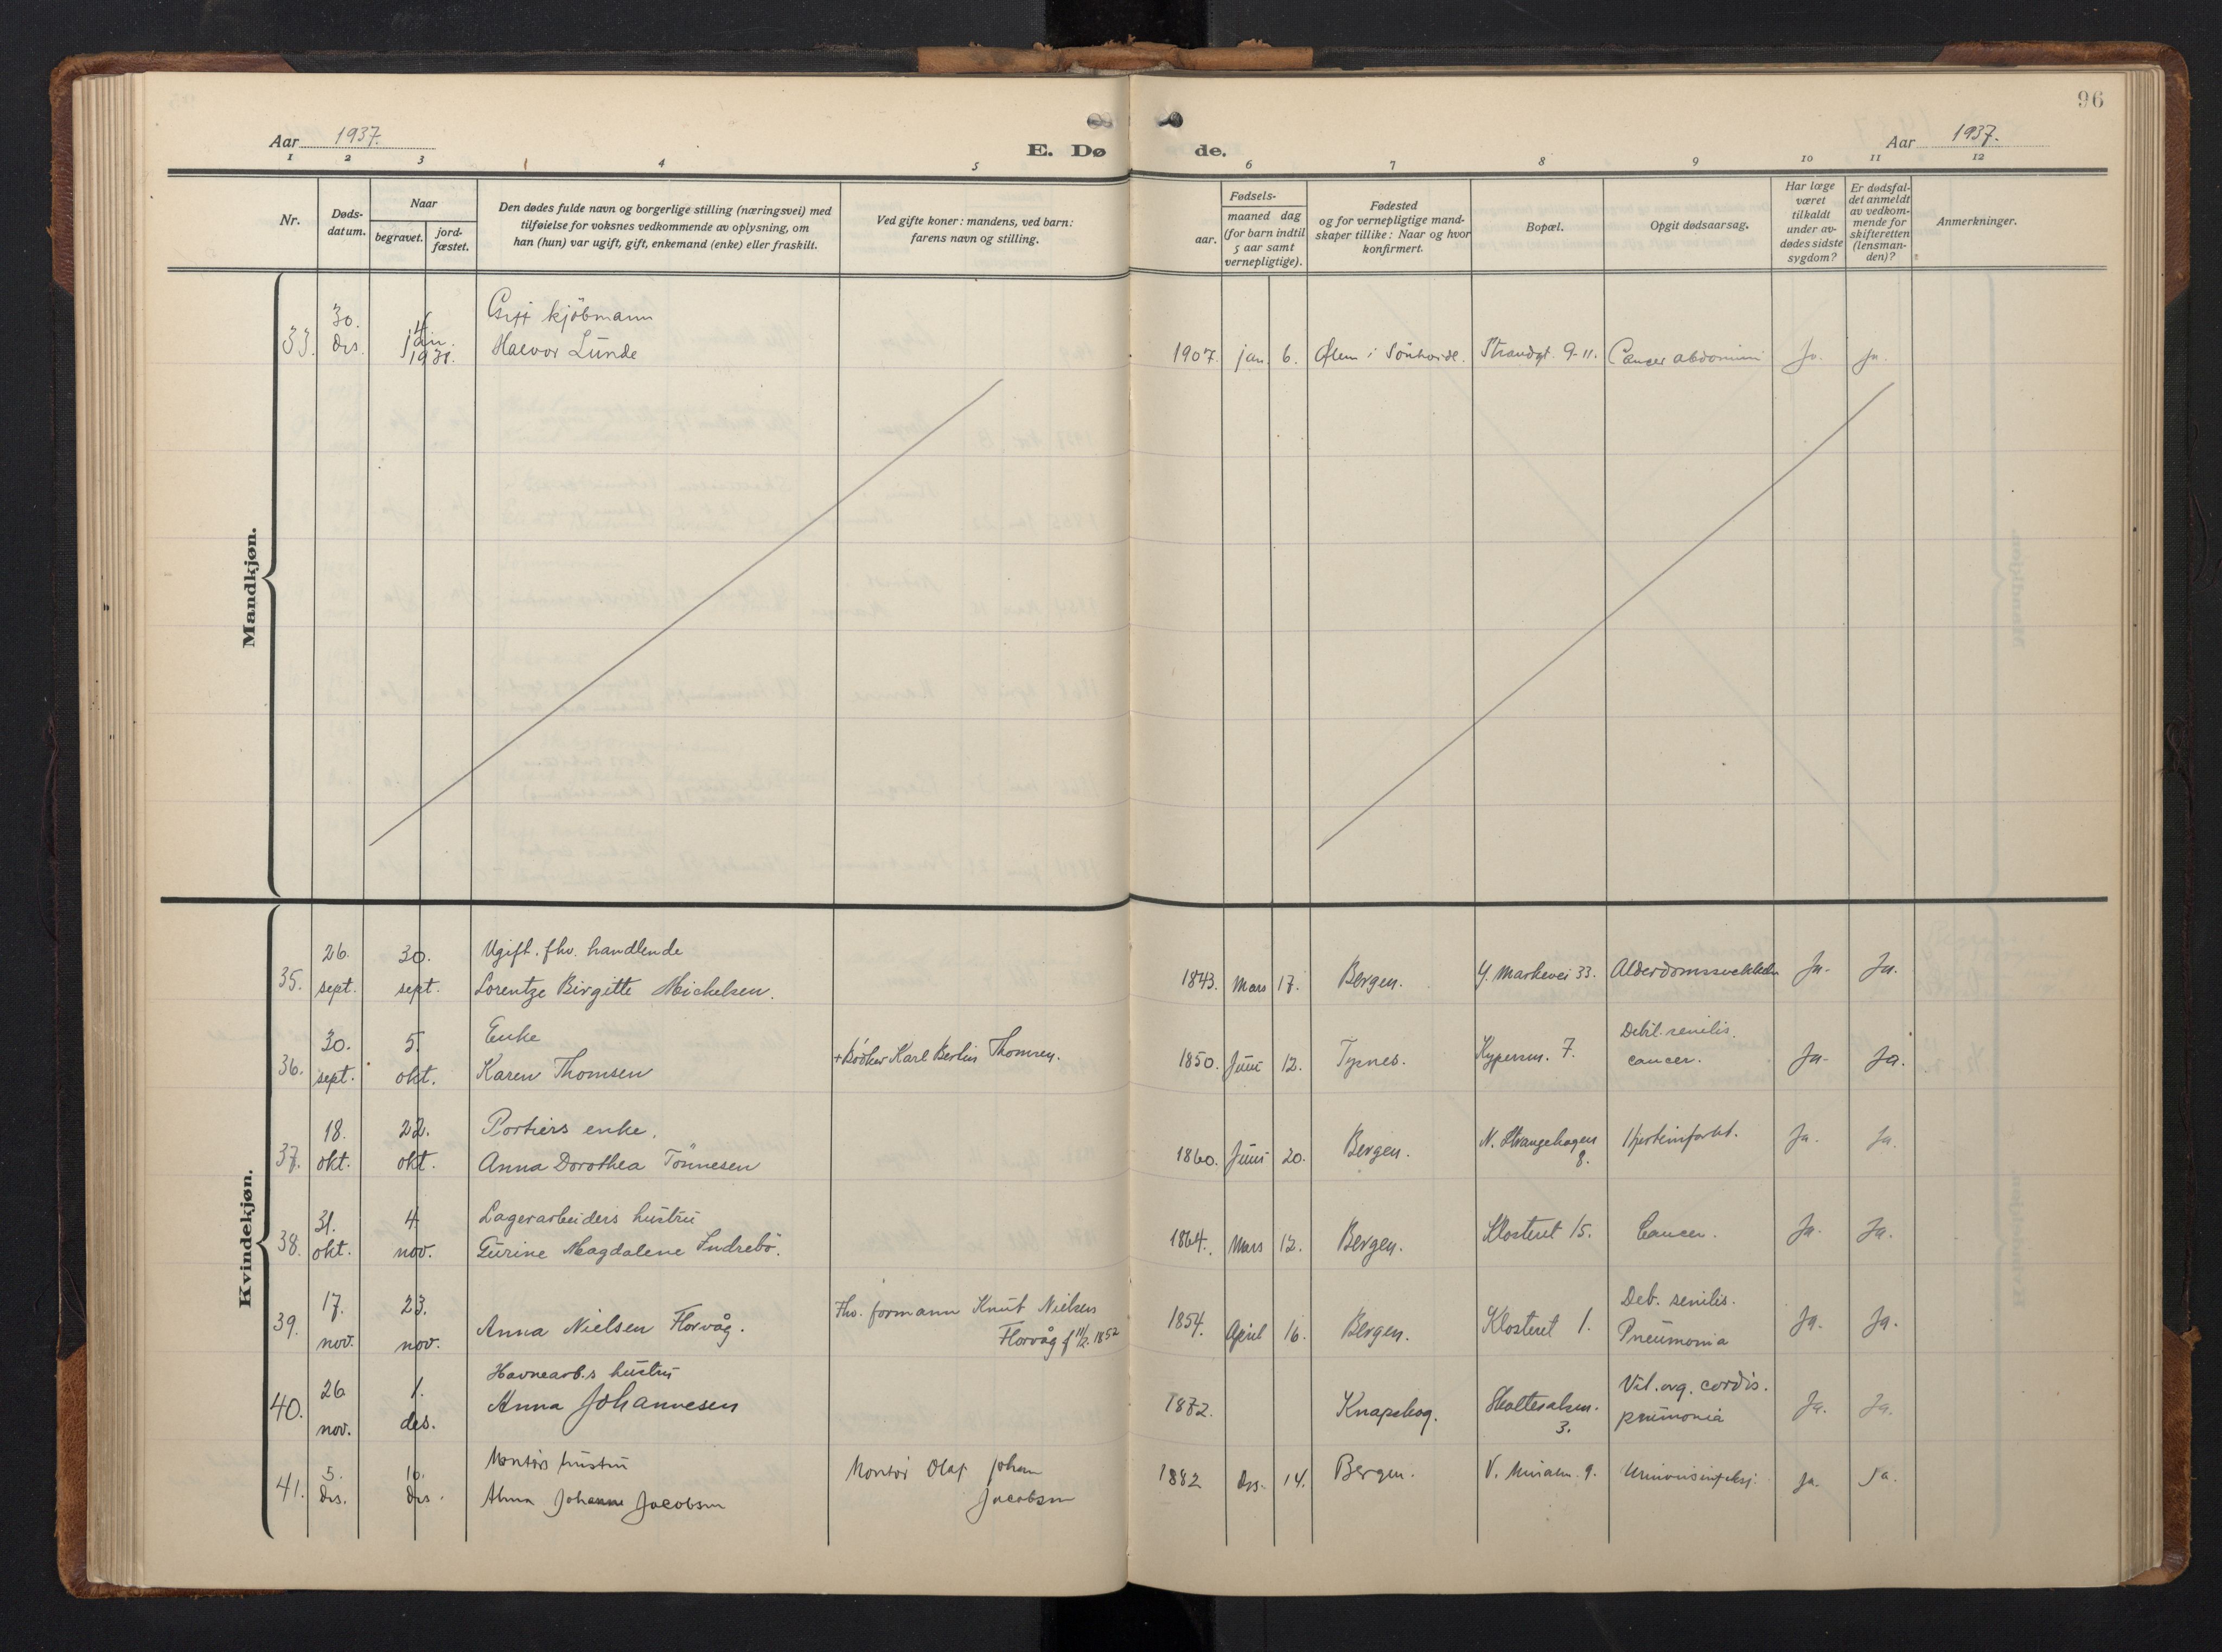 96
Aar 1937.
E. Dø de.
Aar 1937.
1 2 3 4 5 6 7 8 9 10 11 12
Nr.
Døds-
datum.
Naar
begravet.
jord-
fæstet.
Den dødes fulde navn og borgerlige stilling (næringsvei) med
tilføielse for voksnes vedkommende av oplysning, om
han (hun) var ugift, gift, enkemand (enke) eller fraskilt.
Ved gifte koner: mandens, ved barn:
farens navn og stilling.
Fødsels-
aar.
maaned dag
(for barn indtil
5 aar samt
vernepligtige).
Fødested
og for vernepligtige mand-
skaper tillike: Naar og hvor
konfirmert.
Bopæl.
Opgit dødsaarsag.
Har læge
været
tilkaldt
under av-
dødes sidste
sygdom?
Er dødsfal-
det anmeldt
av vedkom-
mende for
skifteretten
(lensman-
den)?
Anmerkninger.
Mandkjøn.
33. 30. des. 4 jan. Gift kjöbmann
Halvor Lunde
1907. jan. 6. Ølen i Sönhordl. Strandgt. 9-11. Cancer abdomini Ja. Ja.
Kvindekjøn.
35. 26. sept. 30. sept. Ugift. fhv. handlende
Lorentze Birgitte Michelsen.
1843. Mars 17. Bergen. Y. Markevei 33. Alderdomssvekkelse Ja. Ja.
36. 30. sept. 5. okt. Enke
Karen Thomsen
+ Bödker Karl Berlin Thomsen.
1850. Juni 12. Tysnes. 7. Debil. senilis.
cancer. Ja. Ja.
37. 18. okt. 22. okt. Portiers enke.
Anna Dorothea Tönnesen
1860. Juni 20. Bergen. N. Strangehagen
8. Hjerteinfarkt. Ja. Ja.
38. 31. okt. 4 nov. Lagerarbeiders hustru
Gurine Magdalene Indrebö.
1864. Mars 12. Bergen. Klosteret 15. Cancer. Ja. Ja.
39. 17. nov. 23. nov. Anna Nielsen Florvåg.
Fhv. formann Knut Nielsen
Florvåg f 11/2. 1852
1854. April 16. Bergen. Klosteret 1. Deb. senilis.
Pneumonia Ja. Ja.
40. 26 nov. 1. des. Havnearb.s hustru
Anna Johannesen
1872. Knapskog. 3. Vit. org. cordis.
pneumonia Ja. Ja.
41. 5. des. 10. des. Montörs hustru
Alma Johanne Jacobsen
Montör Olaf Johan
Jacobsen
1882 des. 14. Bergen. V. Muralm. 9. Ja. Ja.